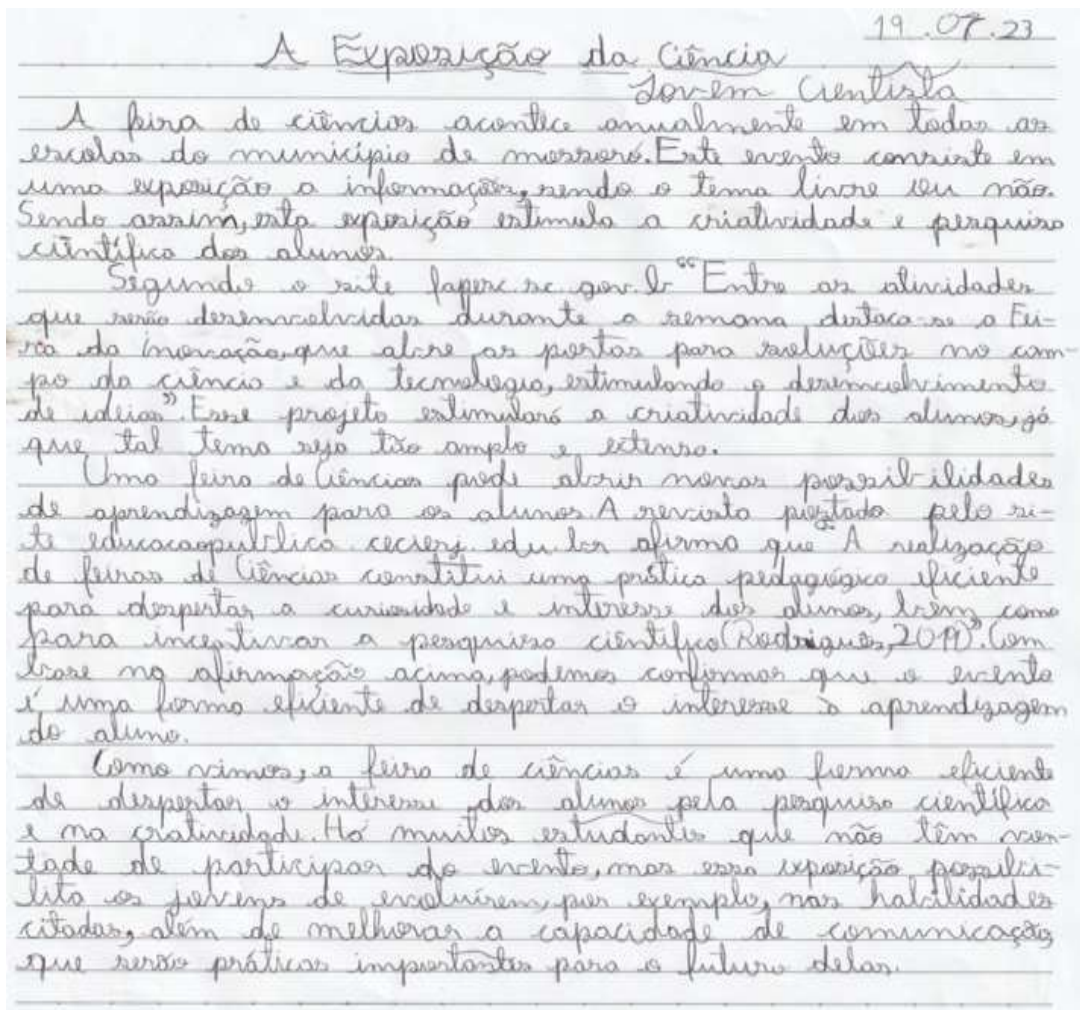 19.07.23
A Exposição da Ciência
Jovem Cientista
A feira de ciências acontece anualmente em todas as
escolas do município de mossoró. Este evento consiste em
uma exposição a informações, sendo o tema livre ou não.
Sendo assim, esta exposição estimula a criatividade e pesquisa
científica dos alunos.
Segundo o site fapesc.sc.gov.br "Entre as atividades
que serão desenvolvidas durante a semana destaca-se a Fei-
ra da inovação, que abre as portas para soluções no cam-
po da ciência e da tecnologia, estimulando o desenvolvimento
de ideias". Esse projeto estimulará a criatividade dos alunos, já
que tal tema seja tão amplo e extenso.
Uma feira de Ciências pode abrir novas possibilidades
de aprendizagem para os alunos. A revista postada pelo si-
te educacaopublica.cecierj.edu.br afirma que "A realização
de feiras de Ciências constitui uma prática pedagógica eficiente
para despertar a curiosidade e interesse dos alunos, bem como
para incentivar a pesquisa científica (Rodrigues, 2019)". Com
base na afirmação acima, podemos confirmar que o evento
é uma forma eficiente de despertar o interesse à aprendizagem
do aluno.
Como vimos, a feira de ciências é uma forma eficiente
de despertar o interesse dos alunos pela pesquisa científica
e na criatividade. Há muitos estudantes que não têm von-
tade de participar do evento, mas essa exposição possibi-
lita os jovens de evoluírem, por exemplo, nas habilidades
citadas, além de melhorar a capacidade de comunicação,
que serão práticas importantes para o futuro delas.